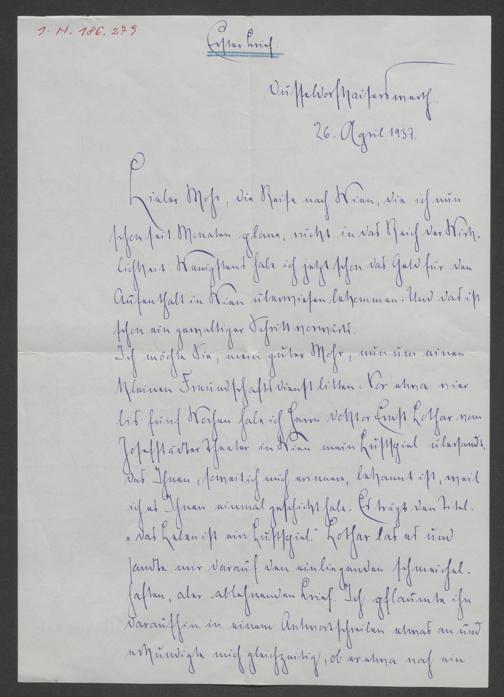 J. N. 186.279
Erster Brief.
Düsseldorf Kaiserswerth.
26. April 1937.
Lieber Mohr, die Reise nach Wien, die ich nun
schon seit Monaten plane, rückt in das Reich der Wirk-
lichkeit. Wenigstens habe ich jetzt schon das Geld für den
Aufenthalt in Wien überwiesen bekommen. Und das ist
schon ein gewaltiger Schritt vorwärts.
Ich möchte Sie, mein guter Mohr, nun um einen
kleinen Freundschaftsdienst bitten: Vor etwa vier
bis fünf Wochen habe ich Herrn Doktor Ernst Lothar vom
Josefstädter Theater in Wien mein Lustspiel übersandt,
das Ihnen, soweit ich mich erinnere, bekannt ist, weil
ich es Ihnen einmal geschickt habe. Es trägt den Titel.
„Das Leben ist ein Lustspiel." Lothar las es und
sandte mir darauf den einliegenden schmeichel-
haften, aber ablehnenden Brief. Ich pflaumte ihn
daraufhin in einem Antwortschreiben etwas an und
erkundigte mich gleichzeitig, ob er etwa noch ein